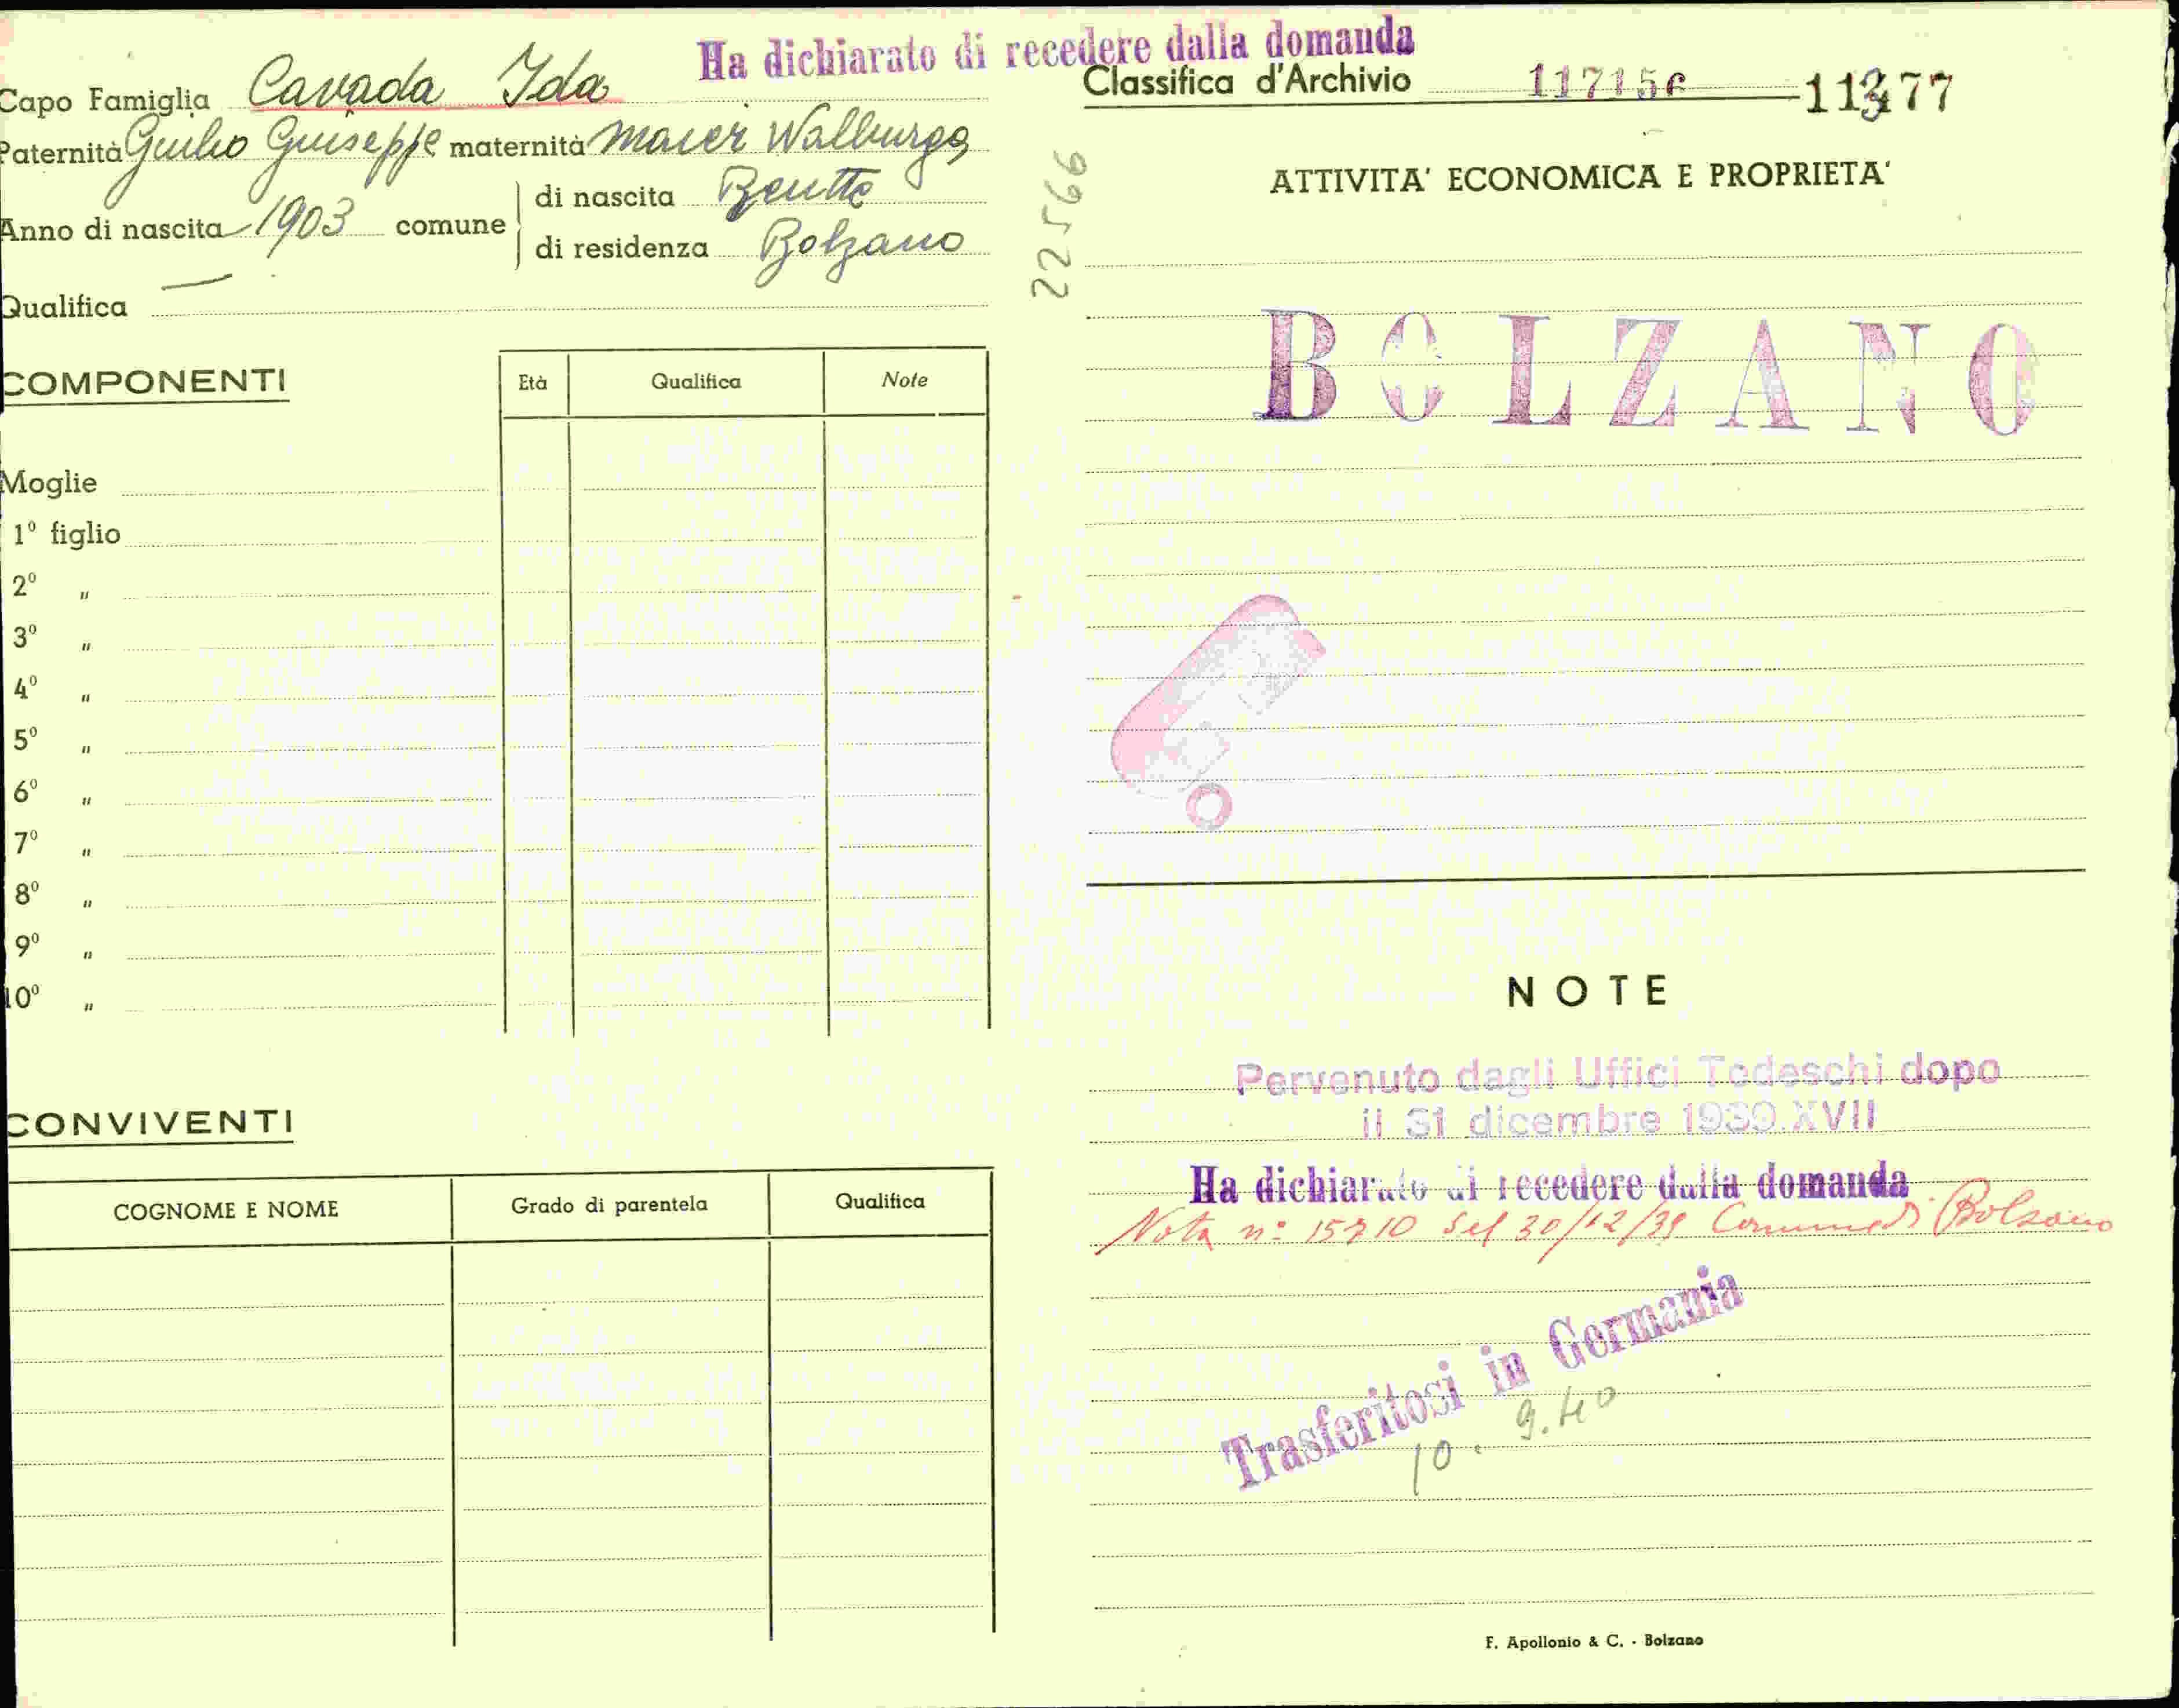 Ha dichiarato di recedere dalla domanda
Capo Famiglia Cavada Ida
Paternità Giulio Giuseppe maternità Maier Walburga
Anno di nascita 1903 comune
di nascita
di residenza Bolzano
Qualifica —
COMPONENTI
Età Qualifica Note
Moglie
1º figlio
2º "
3º "
4º "
5º "
6º "
7º "
8º "
9º "
10º "
CONVIVENTI
COGNOME E NOME Grado di parentela Qualifica
Classifica d'Archivio 117156
22566
ATTIVITA' ECONOMICA E PROPRIETA'
BOLZANO
NOTE
Pervenuto dagli Uffici Tedeschi dopo
il 31 dicembre 1939.XVII
Ha dichiarato di recedere dalla domanda
Nota nº 15710 del 30/12/39 Comune di Bolzano
Trasferitosi in Germania
10.9.40
F. Apollonio & C. - Bolzano